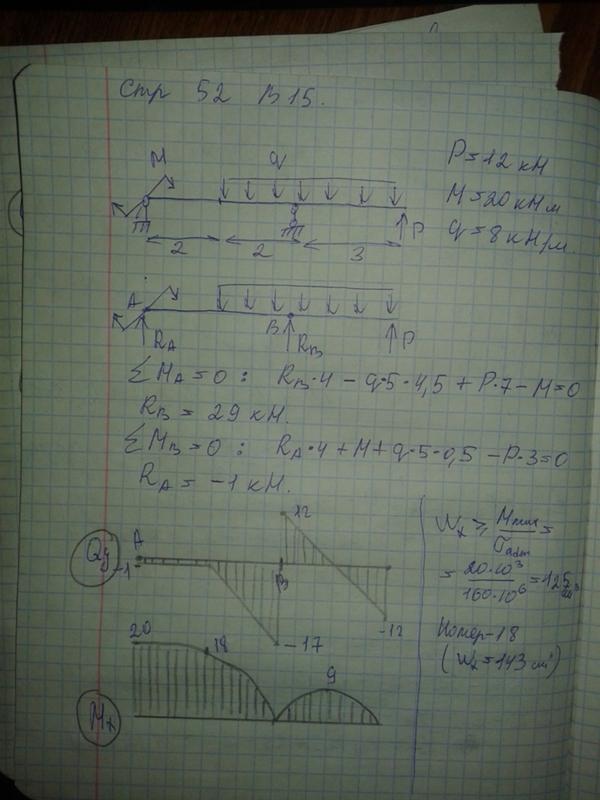 Стр 52 В 15.
M q
P=12 кН
M=20 кНм
q=8 кН/м.
P
2 2 3
A B P
R_A R_B
ΣM_A=0: R_B·4 − q·5·4,5 + P·7 − M=0
R_B = 29 кН.
ΣM_B=0: R_A·4 + M + q·5·0,5 − P·3=0
R_A = −1 кН.
Qy A -1 B 12 -17 -12
W_x ≥ M_max/σ_adm =
= 20·10³/160·10⁶ = 125 см³
Номер-18
(W_x=143 см³)
Mx 20 18 9